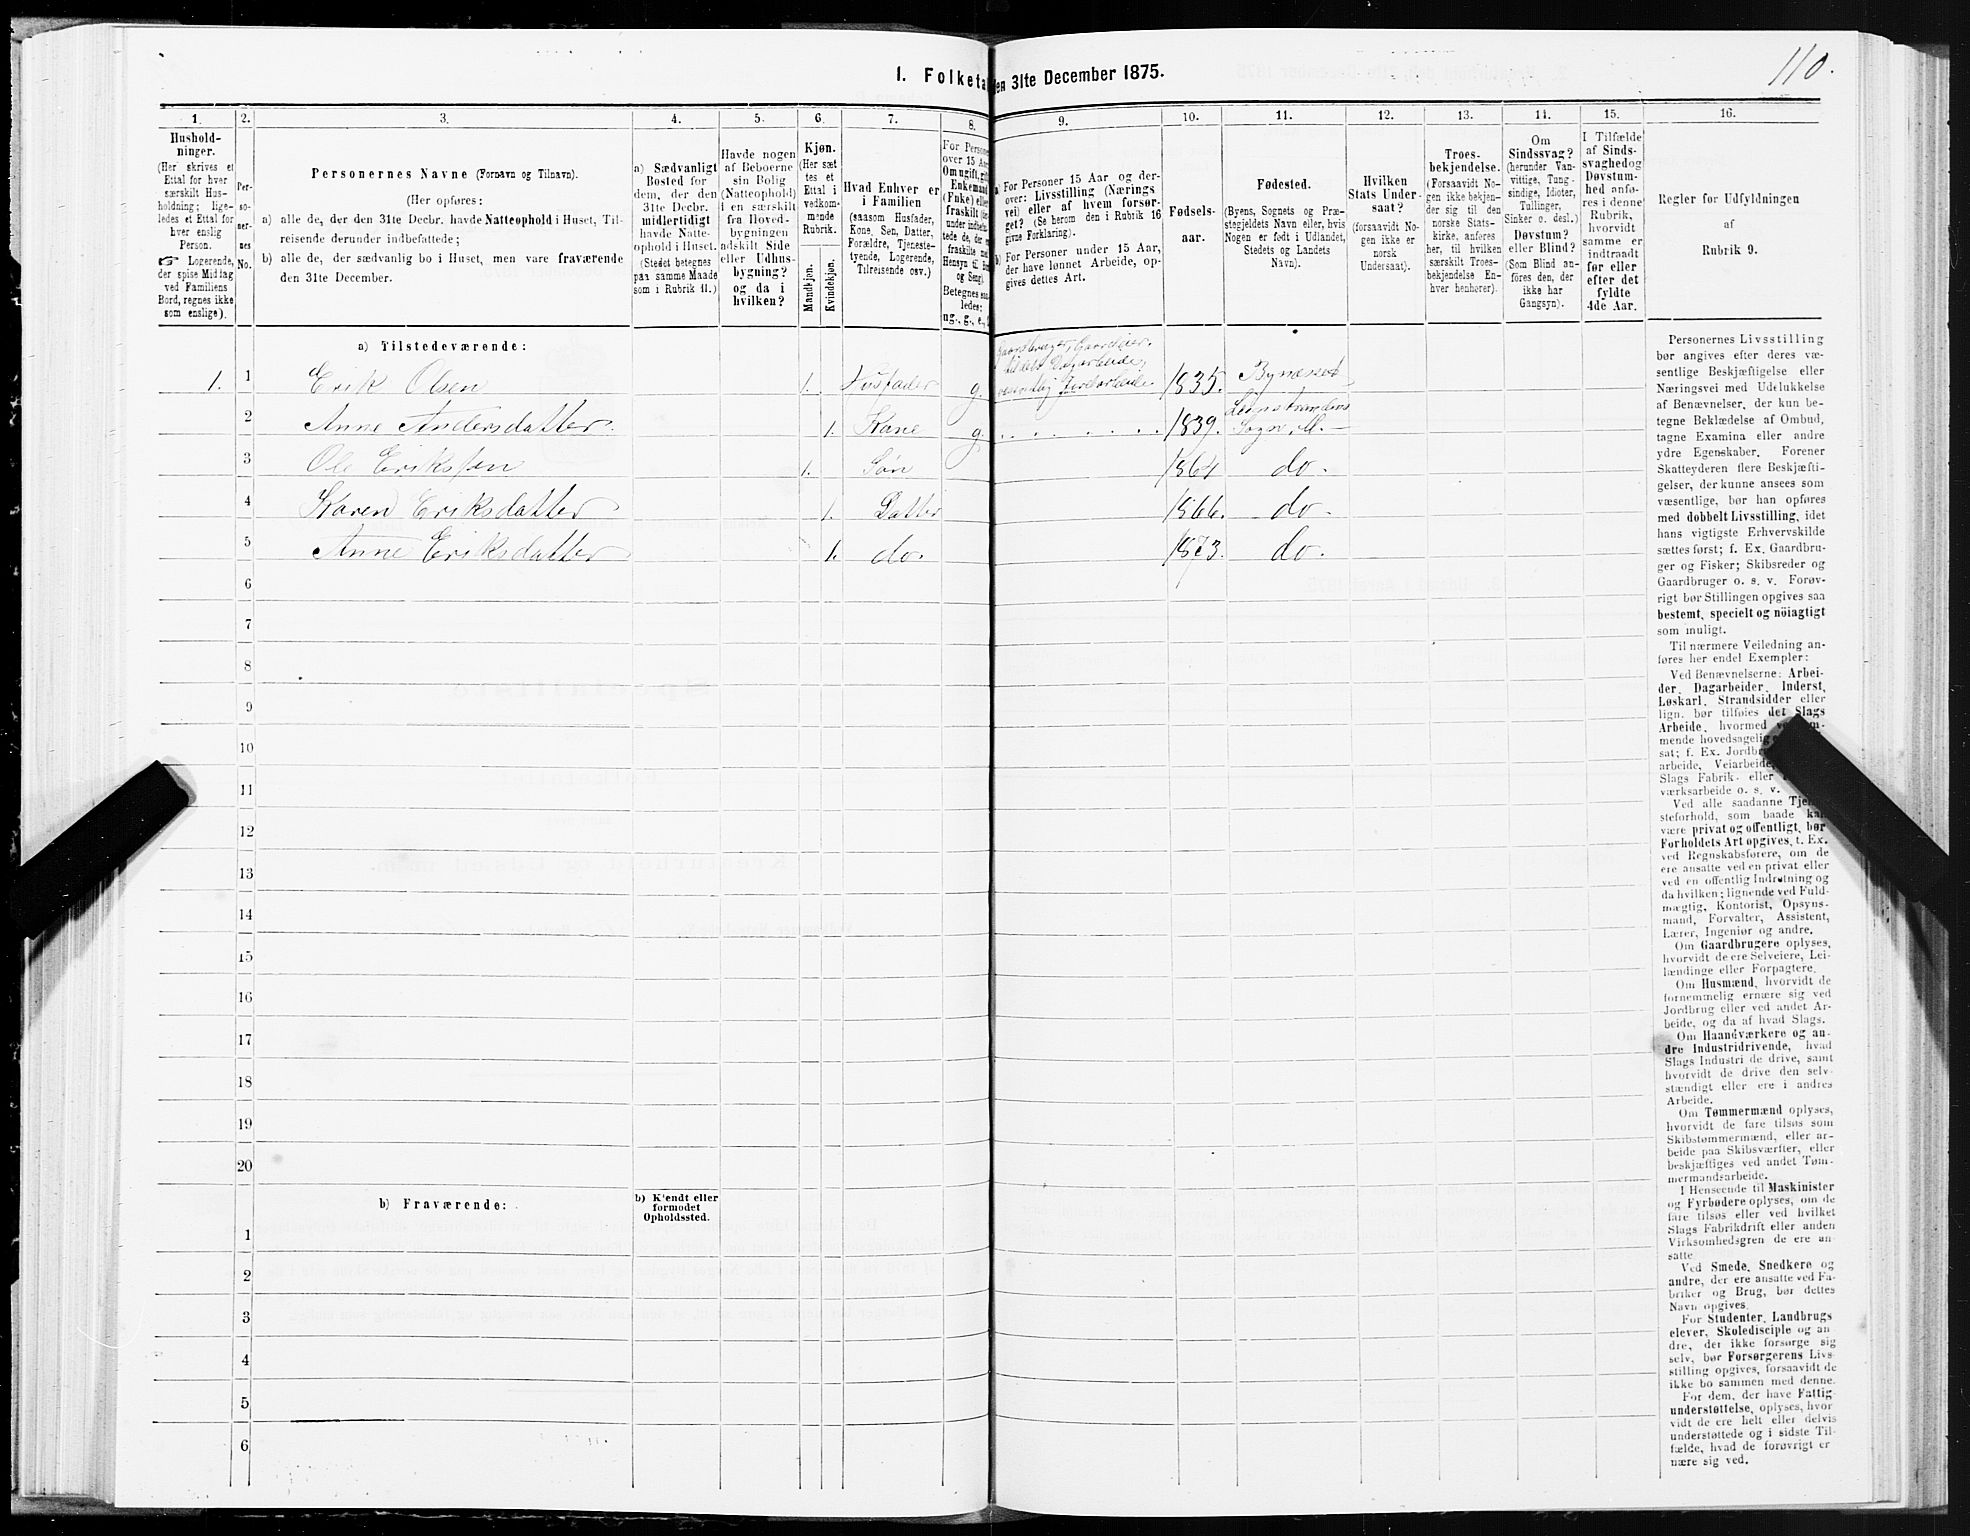 110.
1. Folketa en 31te December 1875.
1. 2. 3. 4. 5. 6. 7. 8. 9. 10. 11. 12. 13. 14. 15. 16.
Hushold-
ninger.
(Her skrives et
Ettal for hver
særskilt Hus-
holdning; lige-
ledes et Ettal for
hver enslig
Person.
☞ Logerende,
der spise Middag
ved Familiens
Bord, regnes ikke
som enslige).
Per-
so-
ner-
nes
No.
Personernes Navne (Fornavn og Tilnavn).
(Her opføres:
a) alle de, der den 31te Decbr. havde Natteophold i Huset, Til-
reisende derunder indbefattede;
b) alle de, der sædvanlig bo i Huset, men vare fraværende
den 31te December.
a) Sædvanligt
Bosted for
dem, der den
31te Decbr.
midlertidigt
havde Natte-
ophold i Huset.
(Stedet betegnes
paa samme Maade
som i Rubrik 11.)
Havde nogen
af Beboerne
sin Bolig
(Natteophold)
i en særskilt
fra Hoved-
bygningen
adskilt Side
eller Udhus-
bygning?
og da i
hvilken?
Kjøn.
(Her sæt-
tes et
Ettal i
vedkom-
mende
Rubrik.
Mandkjøn.
Kvindekjøn.
Hvad Enhver er
i Familien
(saasom Husfader,
Kone, Søn, Datter,
Forældre, Tjeneste-
tyende, Logerende,
Tilreisende osv.)
For Person
over 15 Aar
Om ugift, gift
Enkemand
(Enke) elle
fraskilt (
under indbe
tede de, der e
fraskilte me
Hensyn til Bo
og Seng).
Betegnes saa
ledes:
ug., g., e.,
a) For Personer 15 Aar og der-
over: Livsstilling (Nærings-
vei) eller af hvem forsør-
get? (Se herom den i Rubrik 16
givne Forklaring).
b) For Personer under 15 Aar,
der have lønnet Arbeide, op-
gives dettes Art.
Fødsels-
aar.
Fødested.
(Byens, Sognets og Præ-
stegjeldets Navn eller, hvis
Nogen er født i Udlandet,
Stedets og Landets
Navn).
Hvilken
Stats Under-
saat?
(forsaavidt No-
gen ikke er
norsk
Undersaat).
Troes-
bekjendelse.
(Forsaavidt No-
gen ikke bekjen-
der sig til den
norske Stats-
kirke, anføres
her, til hvilken
særskilt Troes-
bekjendelse En-
hver henhører).
Om
Sindssvag?
(herunder Van-
vittige, Tung-
sindige, Idioter,
Tullinger,
Sinker o. desl.)
Døvstum?
eller Blind?
(Som Blind an-
føres den, der
ikke har
Gangsyn).
I Tilfælde
af Sinds-
svaghedog
Døvstum-
hed anfø-
res i denne
Rubrik,
hvorvidt
samme er
indtraadt
før eller
efter det
fyldte
4de Aar.
Regler for Udfyldningen
af
Rubrik 9.
a) Tilstedeværende:
1. 1 Erik Olsen 1. Husfader g. Gaardbruger, Gaardeier, tildels Dagarbeide, Jordarbeide 1835. Bynæsset
2 Anne Andersdatter. 1. Kone g. 1839. Leinstrandens Sogn
3 Ole Eriksøen 1. Søn 1864 do.
4 Karen Eriksdatter 1. Datter 1866. do.
5 Anne Eriksdatter 1. do. 1873. do.
6
7
8
9
10
11
12
13
14
15
16
17
18
19
20
b) Fraværende:
b) K'endt eller
formodet
Opholdssted.
1
2
3
4
5
6
Personernes Livsstilling
bør angives efter deres væ-
sentlige Beskjæftigelse eller
Næringsvei med Udelukkelse
af Benævnelser, der kun be-
tegne Beklædelse af Ombud,
tagne Examina eller andre
ydre Egenskaber. Forener
Skatteyderen flere Beskjæfti-
gelser, der kunne ansees som
væsentlige, bør han opføres
med dobbelt Livsstilling, idet
hans vigtigste Erhvervskilde
sættes først; f. Ex. Gaardbru-
ger og Fisker; Skibsreder og
Gaardbruger o. s. v. Forøv-
rigt bør Stillingen opgives saa
bestemt, specielt og nöiagtigt
som muligt.
Til nærmere Veiledning an-
føres her endel Exempler:
Ved Benævnelserne: Arbei-
der, Dagarbeider, Inderst,
Løskarl, Strandsidder eller
lign. bør tilføies det Slags
Arbeide, hvormed
mende hovedsagelig
sat; f. Ex. Jordbr
arbeide, Veiarbeide,
Slags Fabrik- eller
værksarbeide o. s. v.
Ved alle saadanne Tjene-
steforhold, som baade kan
være privat og offentligt, bør
Forholdets Art opgives, t. Ex.
ved Regnskabsførere, om de
ere ansatte ved en privat eller
ved en offentlig Indretning og
da hvilken; lignende ved Fuld-
mægtig, Kontorist, Opsyns-
mand, Forvalter, Assistent,
Lærer, Ingeniør og andre.
Om Gaardbrugere oplyses,
hvorvidt de ere Selveiere, Lei-
lændinge eller Forpagtere.
Om Husmænd, hvorvidt de
fornemmelig ernære sig ved
Jordbrug eller ved andet Ar-
beide, og da af hvad Slags.
Om Haandværkere og an-
dre Industridrivende, hvad
Slags Industri de drive, samt
hvorvidt de drive den selv-
stændigt eller ere i andres
Arbeide.
Om Tømmermænd oplyses,
hvorvidt de fare tilsøs som
Skibstømmermænd, eller ar-
beide paa Skibsværfter, eller
beskjæftiges ved andet Tøm-
mermandsarbeide.
I Henseende til Maskinister
og Fyrbødere oplyses, om de
fare tilsøs eller ved hvilket
Slags Fabrikdrift eller anden
Virksomhedsgren de ere an-
satte.
Ved Smede, Snedkere og
andre, der ere ansatte ved Fa-
briker og Brug, bør dettes
Navn opgives.
For Studenter, Landbrugs
elever, Skoledisciple og an
dre, der ikke forsørge sig
selv, bør Forsørgerens Livs-
stilling opgives, forsaavidt de
ikke bo sammen med denne.
For dem, der have Fattig-
understøttelse, oplyses, hvor
vidt de ere helt eller delvis
understøttede og i sidste Til-
fælde, hvad de forøvrigt er
nære sig ved.